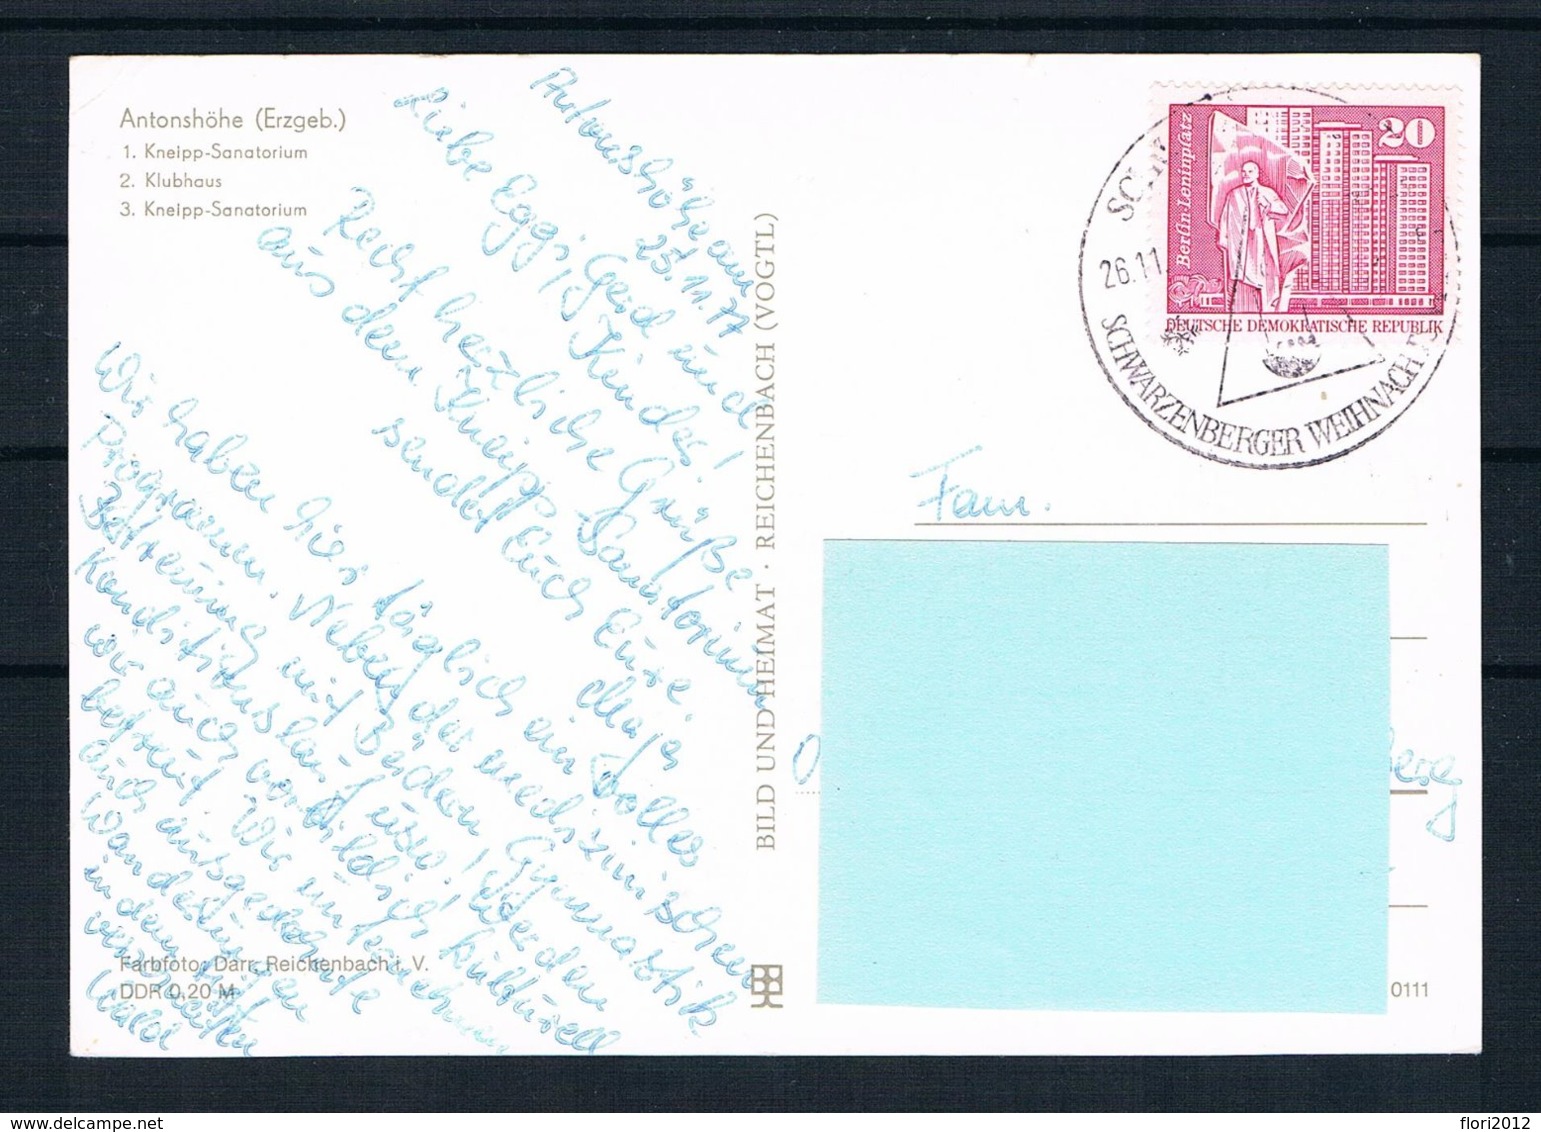 Antonshöhe (Erzgeb.)
1. Kneipp-Sanatorium
2. Klubhaus
3. Kneipp-Sanatorium
Antonshöhe am
25.11.77
Liebe Eggi, Gerd und
Kinder!
Recht herzliche Grüße
aus dem Kneipp Sanatorium
sendet Euch Eure
Wir haben hier täglich ein volles
Programm. Neben der medizinischen
Betreuung mit Bädern, Gymnastik
Konditionslauf usw. werden
wir auch vorbildlich kulturell
betreut. Wir unternehmen
auch ausgedehnte
Wanderungen
in dem
verschneiten
Wald
Farbfoto: Darr, Reichenbach i. V.
DDR 0,20 M
BILD UND HEIMAT · REICHENBACH (VOGTL)
20
Berlin-Leninplatz
DEUTSCHE DEMOKRATISCHE REPUBLIK
26.11.
SCHWARZENBERGER WEIHNACH
Fam.
berg
0111
flori2012